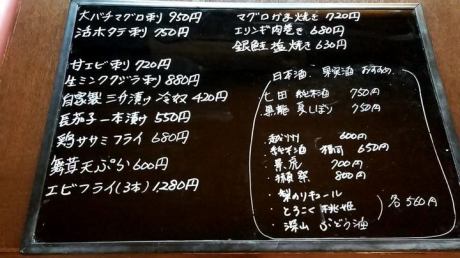 大バチマグロ刺 950円
活ホタテ刺 750円
甘エビ刺 720円
生ミンククジラ刺 880円
自家製 三升漬け 冷奴 420円
長茄子一本漬け 550円
鶏ササミフライ 680円
舞茸天ぷら 600円
エビフライ(3本) 1,280円
マグロかま焼き 720円
エリンギ肉巻き 680円
銀鮭塩焼き 630円
日本酒 果実酒 おすすめ
七田 純米酒 750円
黒龍 夏しぼり 750円
・越州 600円
・純米酒 650円
・景虎 700円
・獺祭 800円
・梨のリキュール
・とろこく桃姫
・深山ぶどう酒
各560円